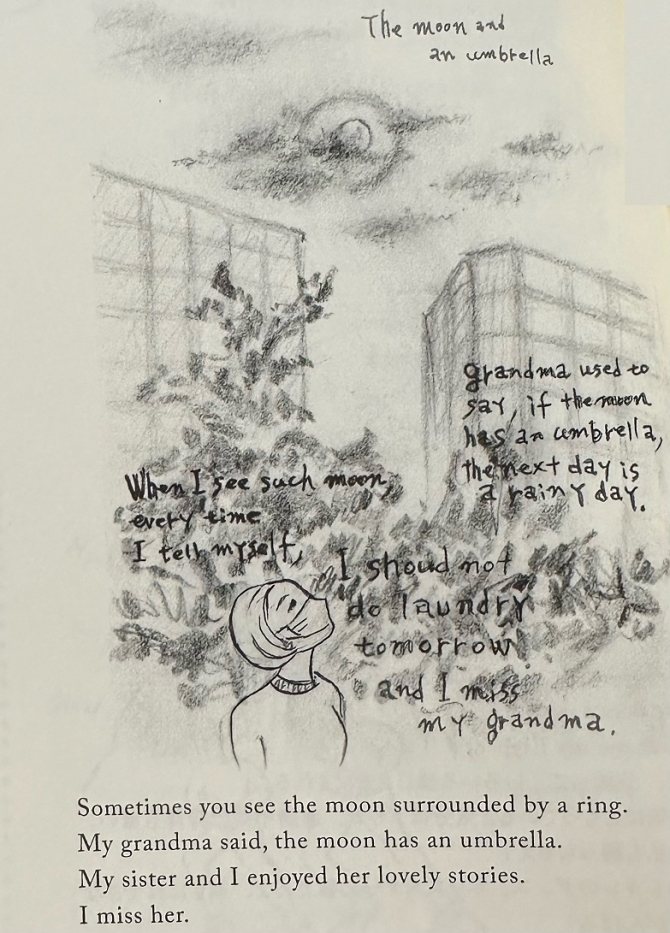 The moon and
an umbrella
grandma used to
say, if the moon
has an umbrella,
the next day is
a rainy day.
When I see such moon,
every time
I tell myself,
I shoud not
do laundry
tomorrow
and I miss
my grandma.
Sometimes you see the moon surrounded by a ring.
My grandma said, the moon has an umbrella.
My sister and I enjoyed her lovely stories.
I miss her.